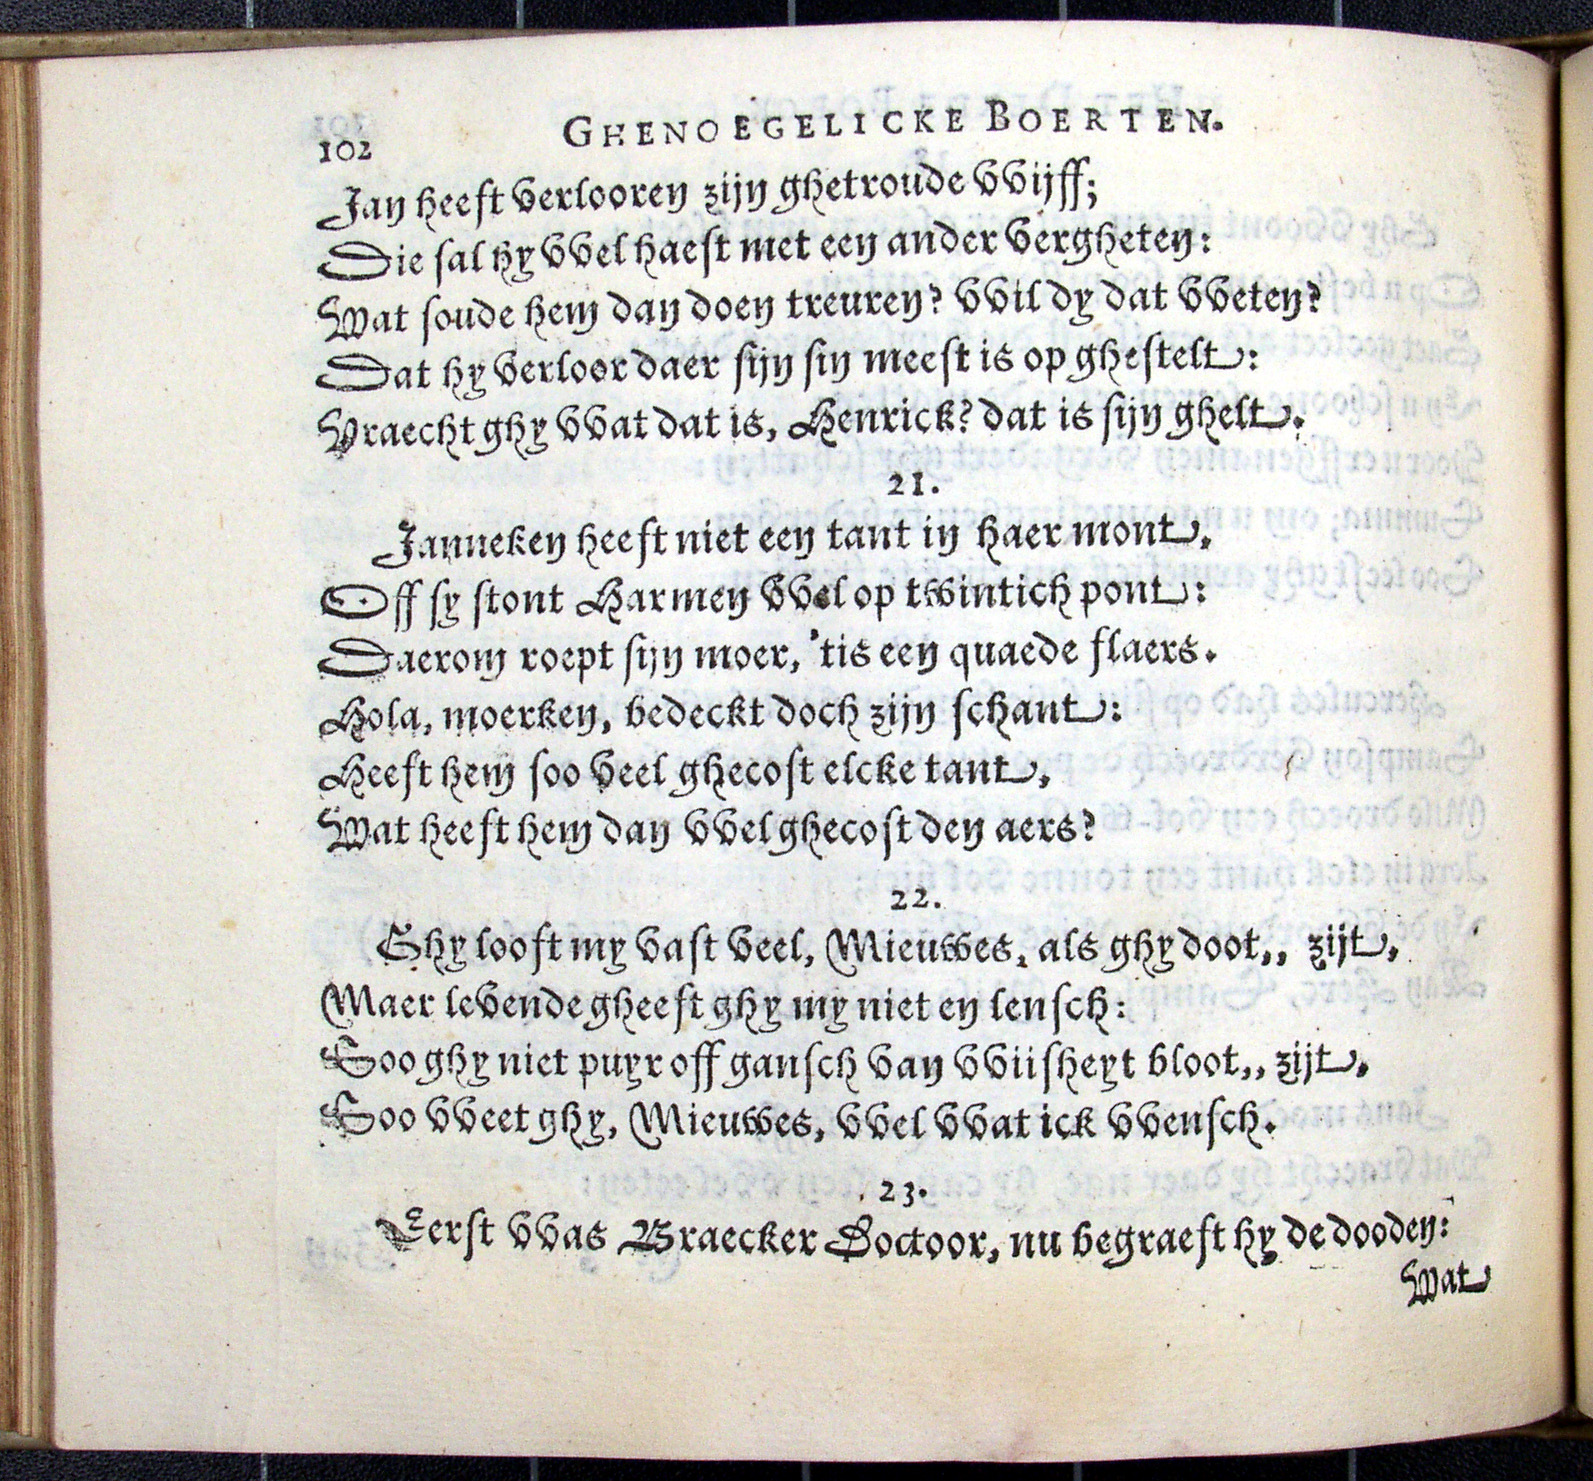 102 GHENOEGELICKE BOERTEN.
Jan heeft verlooren zijn ghetroude vvijff;
Die sal hy vvel haest met een ander vergheten:
Wat soude hem dan doen treuren? vvil dy dat vveten?
Dat hy verloor daer sijn sin meest is op ghestelt:
Vraecht ghy vvat dat is, Henrick? dat is sijn ghelt.
21.
Janneken heeft niet een tant in haer mont,
Off sy stont Harmen vvel op twintich pont:
Daerom roept sijn moer, 'tis een quaede flaers.
Hola, moerken, bedeckt doch zijn schant:
Heeft hem soo veel ghecost elcke tant,
Wat heeft hem dan vvel ghecost den aers?
22.
Ghy looft my vast veel, Mieuwes, als ghy doot,, zijt,
Maer levende gheeft ghy my niet en lensch:
Soo ghy niet puyr off gansch van vviisheyt bloot,, zijt,
Soo vveet ghy, Mieuwes, vvel vvat ick vvensch.
23.
Eerst vvas Braecker Doctoor, nu begraeft hy de dooden:
Wat